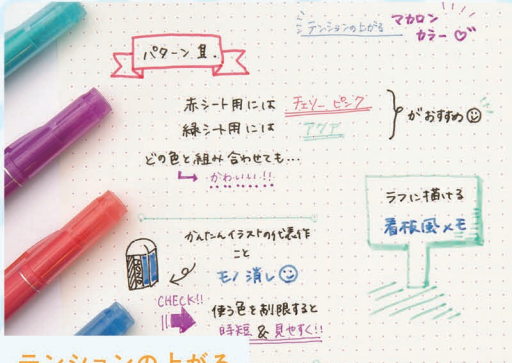 テンションの上がる マカロン
カラー
パターン 其.
赤シート用には チェリーピンク
緑シート用には アクア
がおすすめ
どの色と組み合わせても…
かわいい!!
ラフに描ける
看板風メモ
かんたんイラストの代表作
こと
モノ消し
CHECK!!
使う色を制限すると
時短 & 見やすく!!
テンションの上がる